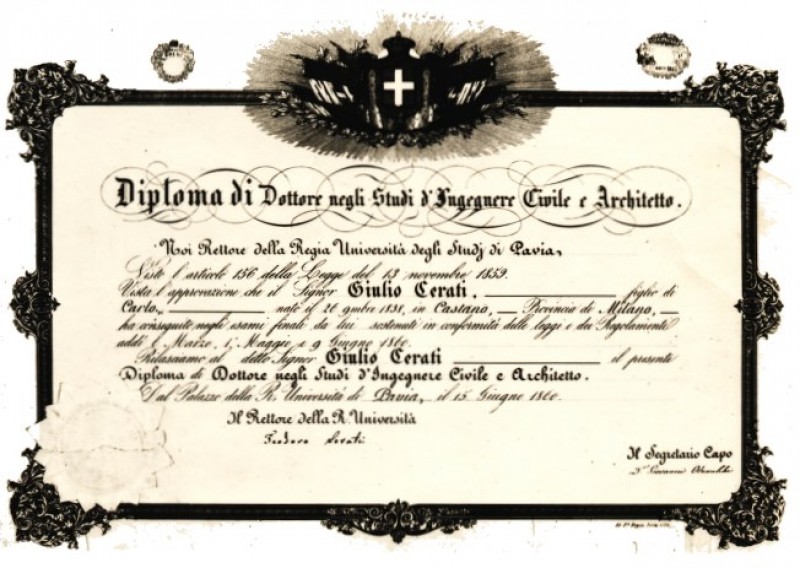 Diploma di Dottore negli Studi d'Ingegnere Civile e Architetto.
Noi Rettore della Regia Università degli Studj di Pavia,
Visto l'articolo 156 della Legge del 13 novembre 1859.
Vista l'approvazione che il Signor Giulio Cerati, figlio di
Carlo, nato il 26 9mbre 1838, in Castano, Provincia di Milano,
ha conseguito negli esami finali da lui sostenuti in conformità delle leggi e dei Regolamenti
addì Marzo, 1° Maggio e 9 Giugno 1860.
Rilasciamo al detto Signor Giulio Cerati il presente
Diploma di Dottore negli Studi d'Ingegnere Civile e Architetto.
Dal Palazzo della R. Università di Pavia, il 15 Giugno 1860.
Il Rettore della R. Università
Il Segretario Capo